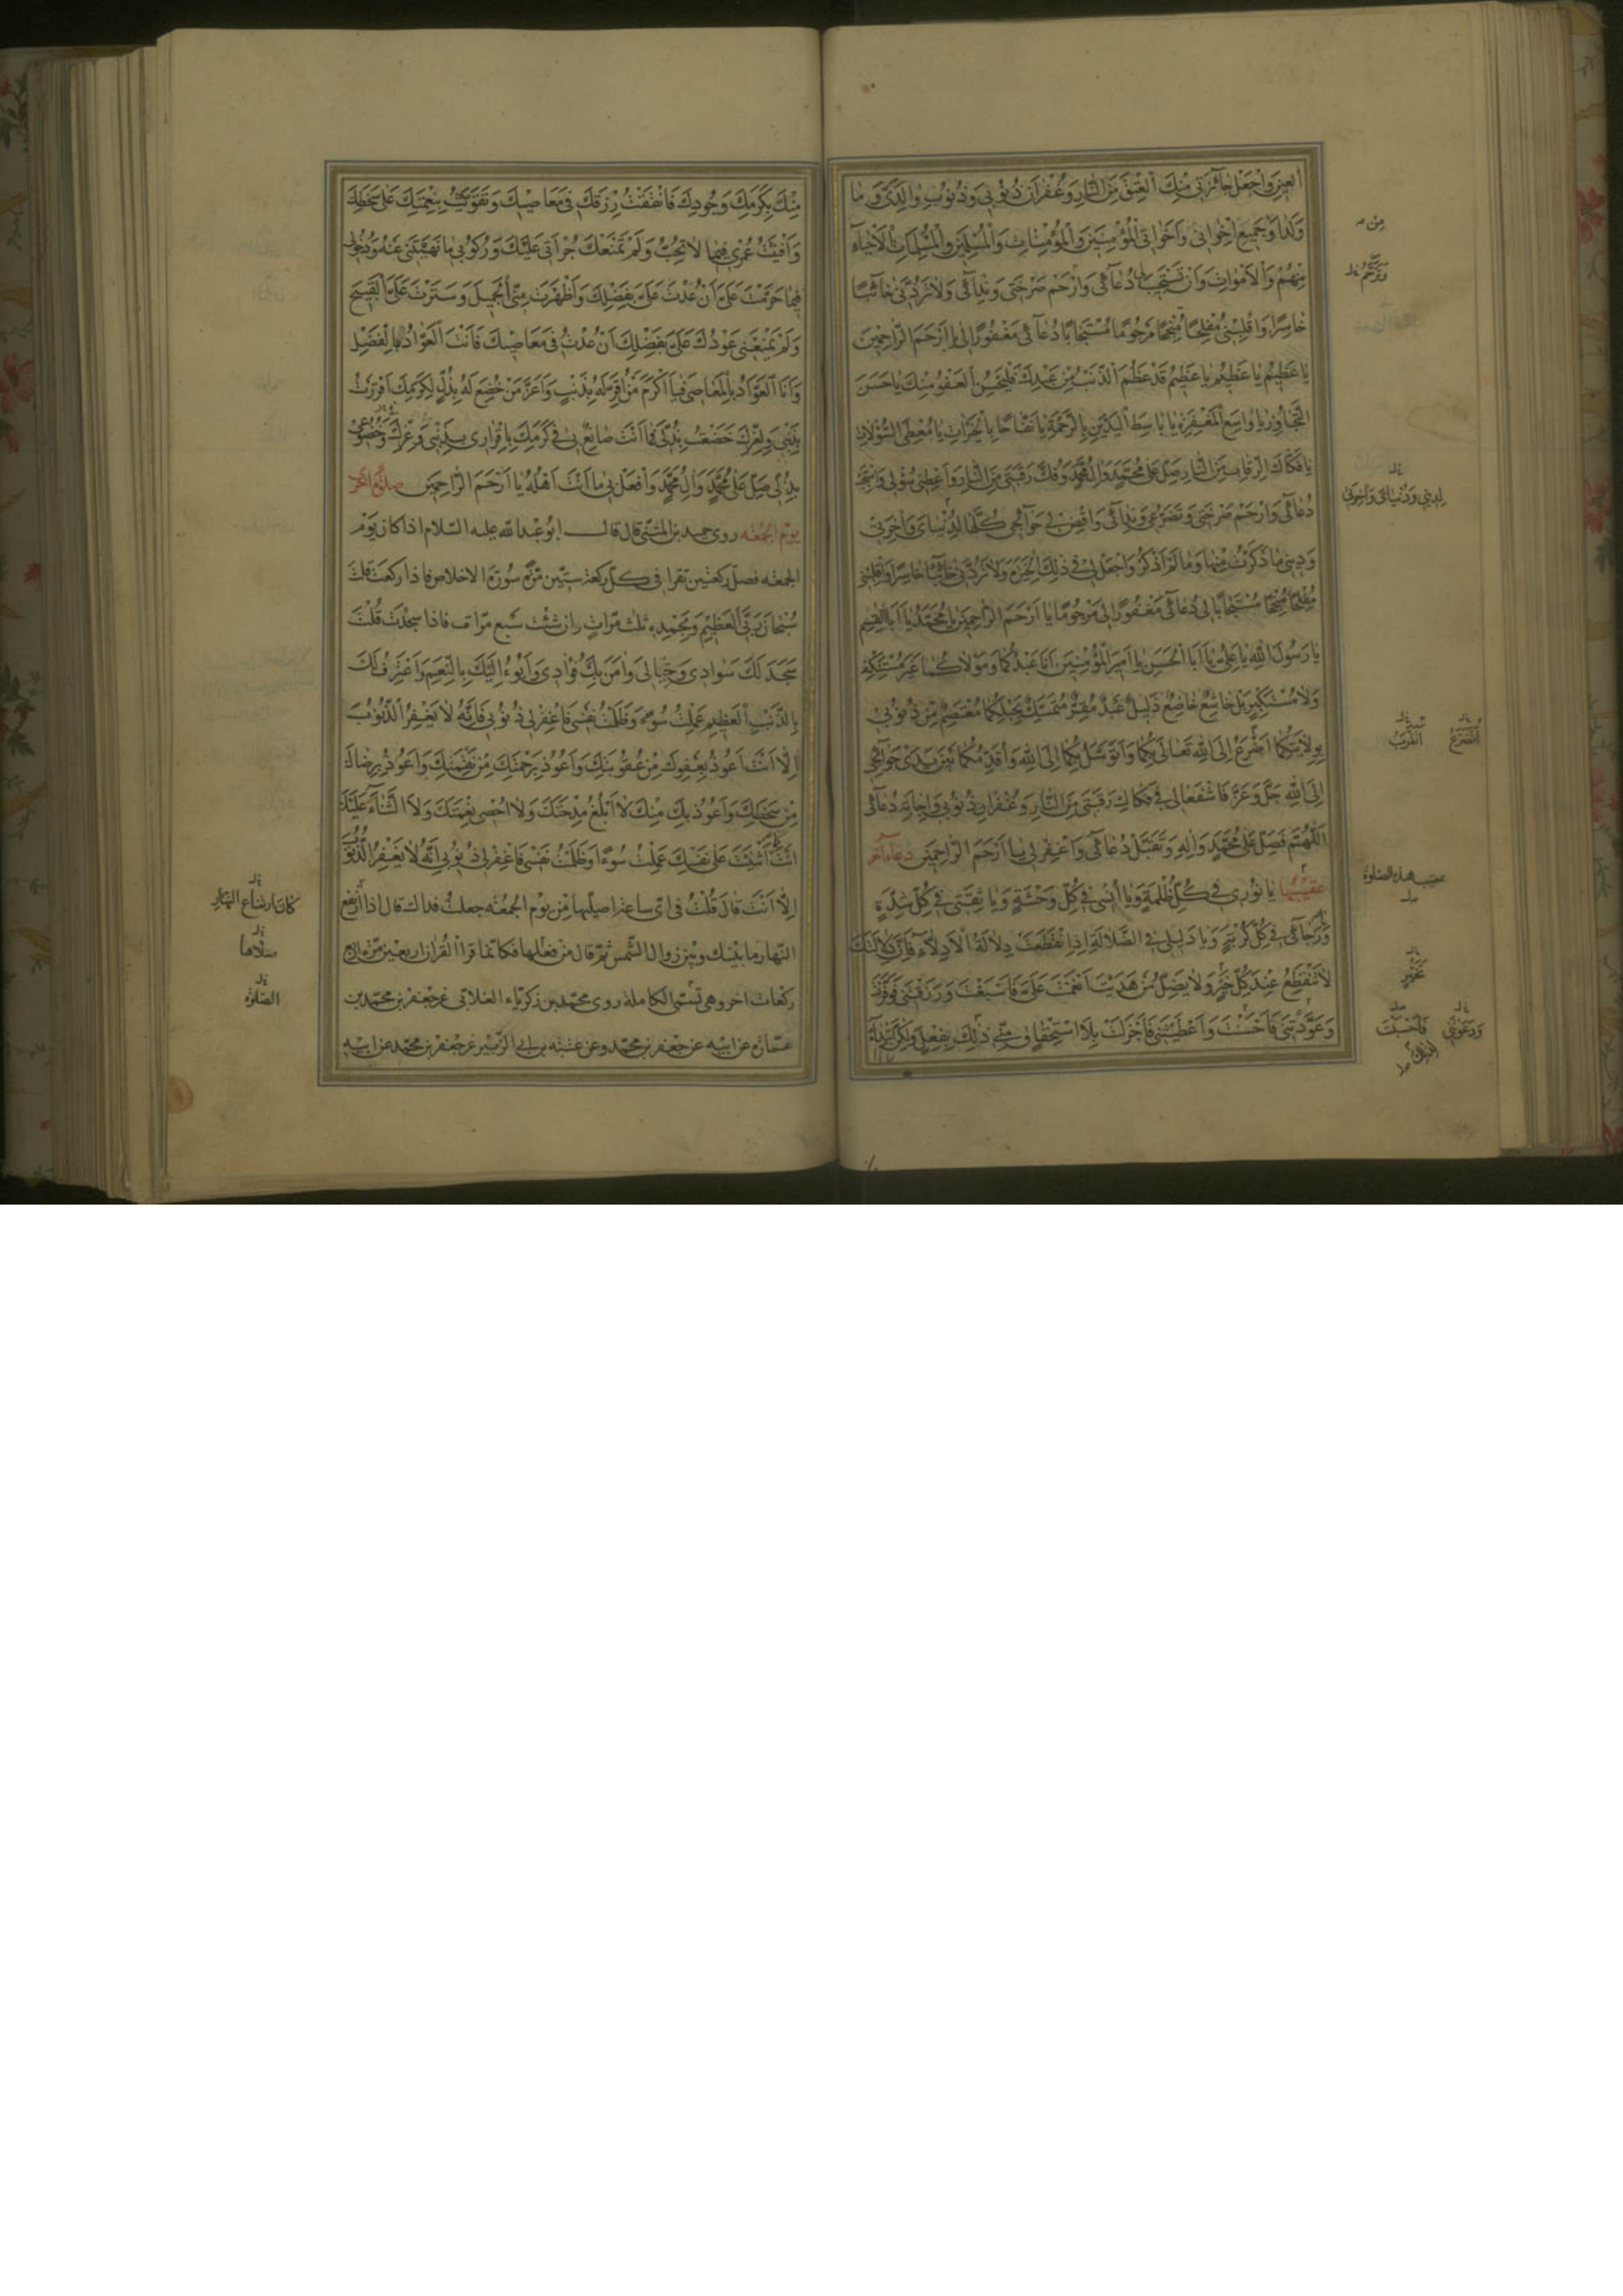 العين واجعل جائزتي منك العتق من النار وغفران ذنوبي وذنوب والدي وما
ولدا وجميع اخواني واخواتي المؤمنين والمؤمنات والمسلمين والمسلمات الاحياء
منهم والاموات وان تستجيب لي دعائي وارحم صرختي وندائي ولا تردني خائبا
خاسرا واقلبني مفلحا منجحا مرحوما مستجابا دعائي مغفورا لي يا ارحم الراحمين
يا عظيم يا عظيم يا عظيم قد عظم الذنب من عبدك فليحسن العفو منك يا حسن
التجاوز يا واسع المغفرة يا باسط اليدين بالرحمة يا نفاحا بالخيرات يا معطي السؤلات
يا فكاك الرقاب من النار صل على محمد وال محمد وفك رقبتي من النار واعطني سؤلي واستجب
دعائي وارحم صرختي وتضرعي وندائي واقض لي حوائجي كلها لدنياي واخرتي
وديني ما ذكرت منها وما لم اذكر واجعل لي في ذلك الخيرة ولا تردني خائبا خاسرا واقلبني
مفلحا منجحا مستجابا لي دعائي مغفورا لي مرحوما يا ارحم الراحمين يا محمد يا ابا القسم
يا رسول الله يا علي يا ابا الحسن يا امير المؤمنين انا عبدكما ومولاكما غير مستنكف
ولا مستكبر بل خاشع خاضع ذليل عبد مقر متمسك بحبلكما معتصم من ذنوبي
بولايتكما اضرع الى الله تعالى بكما واتوسل بكما الى الله واقدمكما بين يدي حوائجي
الى الله جل وعز فاشفعا لي في فكاك رقبتي من النار وغفران ذنوبي واجابة دعائي
اللهم فصل على محمد واله وتقبل دعائي واغفر لي يا ارحم الراحمين دعاء اخر
عقيبها يا نوري في كل ظلمة ويا انسي في كل وحشة ويا ثقتي في كل شدة
ويا رجائي في كل كربة ويا دليلي في الضلالة اذا انقطعت دلالة الادلاء فان دلالتك
لا تنقطع عند كل خير ولا يضل من هديت انعمت علي فاسبغت ورزقتني فوفرت
وعودتني فاحسنت واعطيتني فاجزلت بلا استحقاق مني ذلك بفعل ولكن ابتداء
من
وترحم
لديني ودنياي واخرتي
اتضرع
اتقرب
عقيب هذه الصلوة
ووعدتني
فاحسنت
لذلك
منك بكرمك وجودك فانفقت رزقك في معاصيك وتقويت بنعمتك على سخطك
وافنيت عمري فيما لا تحب ولم تمنعك جراتي عليك وركوبي ما نهيتني عنه ودخولي
فيما حرمت علي ان عدت علي بفضلك واظهرت مني الجميل وسترت علي القبيح
ولم يمنعني عودك علي بفضلك ان عدت في معاصيك فانت العواد بالفضل
وانا العواد بالمعاصي فيا اكرم من اقر له بذنب واعز من خضع له بذل لكرمك اقررت
بذنبي ولعزك خضعت بذلي فما انت صانع بي في كرمك باقراري بذنبي وعزك وخضوعي
بذلي صل على محمد وال محمد وافعل بي ما انت اهله يا ارحم الراحمين صلوة اخرى
يوم الجمعه روى حميد بن المثنى قال قال ابو عبدالله عليه السلام اذا كان يوم
الجمعه فصل ركعتين تقرا في كل ركعة ستين مرة سورة الاخلاص فاذا ركعت قلت
سبحان ربي العظيم وبحمده ثلث مرات وان شئت سبع مرات فاذا سجدت قلت
سجد لك سوادي وخيالي وامن بك فؤادي وابوء اليك بالنعم واعترف لك
بالذنب العظيم عملت سوء وظلمت نفسي فاغفر لي ذنوبي فانه لا يغفر الذنوب
الا انت اعوذ بعفوك من عقوبتك واعوذ برحمتك من نقمتك واعوذ برضاك
من سخطك واعوذ بك منك لا ابلغ مدحتك ولا احصي نعمتك ولا الثناء عليك
انت كما اثنيت على نفسك عملت سوءا وظلمت نفسي فاغفر لي ذنوبي انه لا يغفر الذنوب
الا انت قال قلت في اي ساعة اصليها من يوم الجمعه جعلت فداك قال اذا ارتفع
النهار ما بينك وبين زوال الشمس ثم قال من فعلها فكانما قرا القران اربعين مرة اربع
ركعات اخر وهي تسمى الكاملة روى محمد بن زكرياء الغلابي عن جعفر بن محمد بن
عمارة عن ابيه عن جعفر بن محمد وعن عتبة بن ابي الزبير عن جعفر بن محمد عن ابيه
كان ارتفاع النهار
صلاها
الصلوة